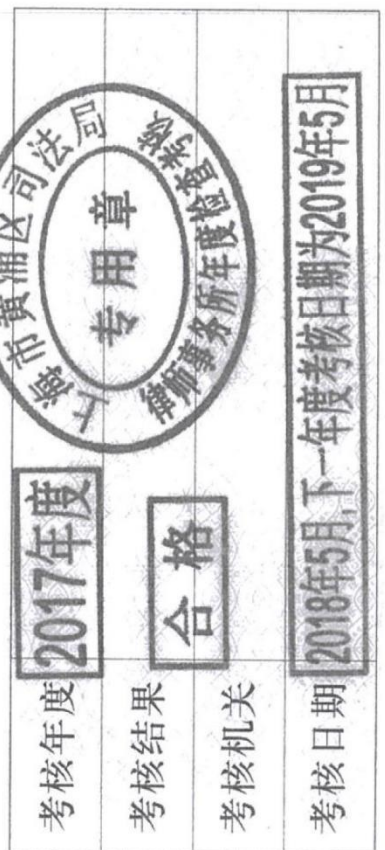 考核年度 2017年度
考核结果 合格
考核机关
上海市黄浦区司法局
专用章
律师事务所年度检查考核
考核日期 2018年5月,下一年度考核日期为2019年5月